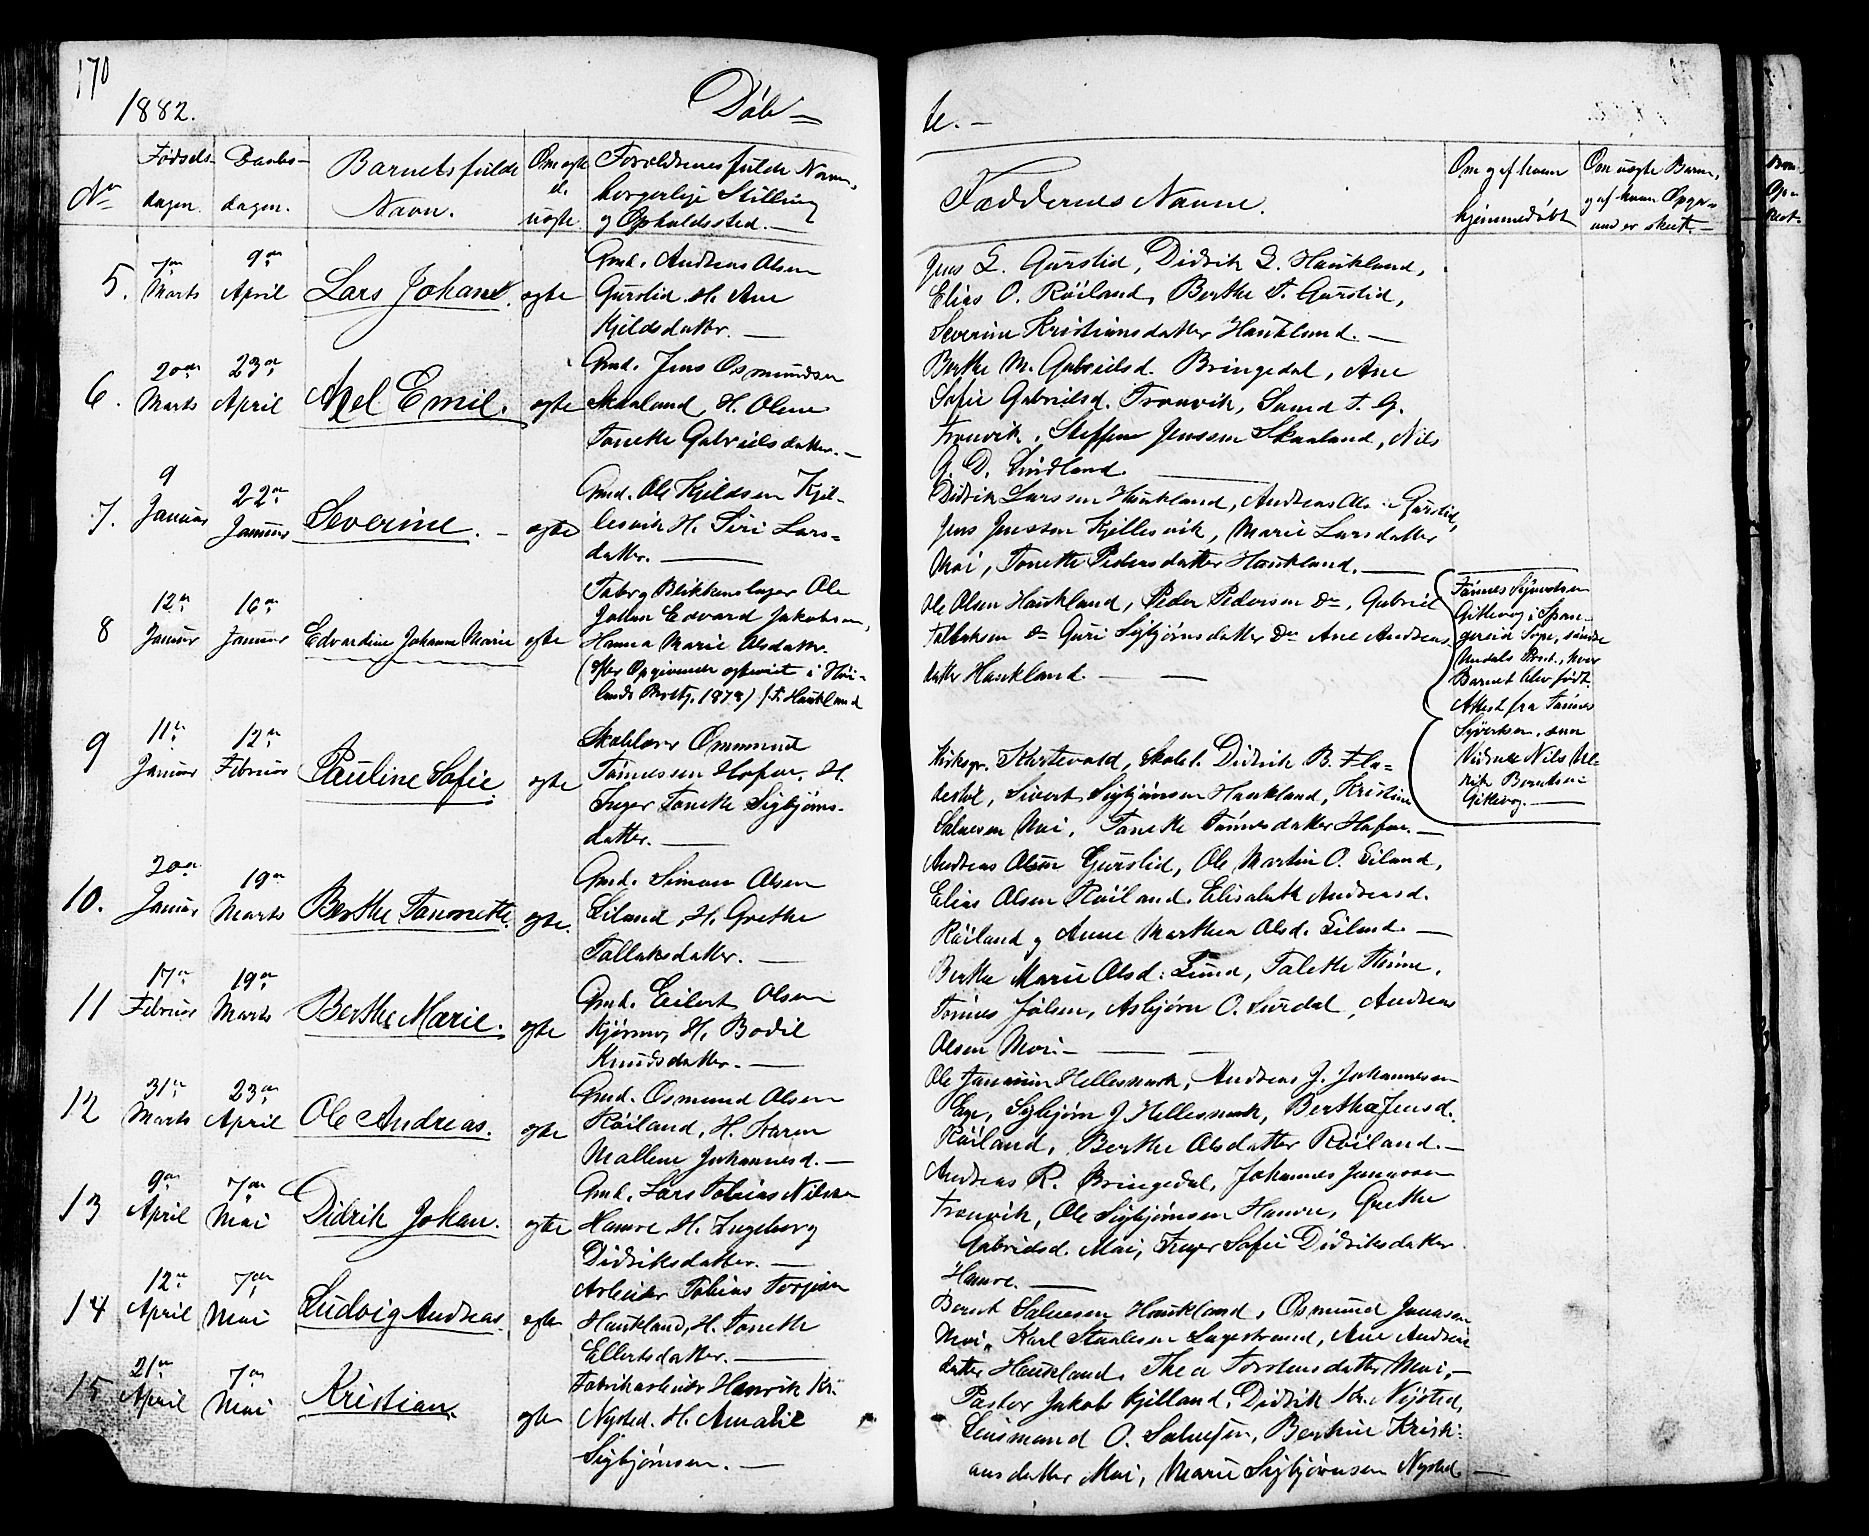 170
1882.
Døb-
te. -
No
Fødsels-
dagen.
Daabs-
dagen.
Barnets fulde
Navn.
Om ægte
el.
uægte.
Forældrenes fulde Navn,
borgerlige Stilling
og Opholdssted. -
Faddernes Navne.
Om og af hvem
hjemmedøbt
Om uægte Barn,
og af hvem Opgi-
5.
7de
Marts
9de
April
Lars Johan
ægte
Gmd. Andreas Olsen
Gursli d. H. Ane
Kjeldsdatter. -
Jens L. Gurslid, Didrik L. Haukland,
Elias O. Røiland, Berthe T. Gurslid,
Severine Kristiansdatter Haukland. -
6.
20de
Marts
23de
April
Axel Emil.
ægte
Gmd. Jens Osmundsen
Skaaland, H. Olene
Tonette Gabrielsdatter. -
Berthe M. Gabrielsd. Bringedal, Ane
Sofie Gabrielsd. Tronvik, T. G.
Tronvik, Steffen Jensen Skaaland, Nils
G. D. Lindland.
7.
9
Januar
22de
Januar
Severine. -
ægte
Gmd. Ole Kjeldsen Kjel-
lesvik H. Siri Lars-
datter. -
Didrik Larssen Haukland, Andreas Gurslid,
Jens Jenssen Kjellesvik, Marie Larsdatter
Moi, Tonette Pedersdatter Haukland. -
8
12te
Januar
16de
Januar
Edvardine Johanne Marie
ægte
Blikkenslager Ole
Johan Edvard Jakobsen,
Hanna Marie Olsdatter.
(efter Opgivende ægteviet i Høi-
lands Prestg. 1878) f. Haukland
Ole Olsen Haukland, Peder Pedersen do, Gabriel
Tallaksen do Guri Sigbjørnsdatter do Ane Andreas-
datter Haukland. -
Tønnes Syvertsen
Gittevog i Span-
gereid Sogn, søndre
Undals Prest., hvor
Barnet blev født.
Attest fra Tønnes
Syvertsen, samt
Vidnet Nils Ul-
rik Berntsen
Gittevog. -
9
11te
Januar
12te
Februar
Pauline Sofie.
ægte
Skolelærer Ommund
Tønnessen Hofne, H.
Inger Tonette Sigbjørns-
datter. -
Kirkesgr. Kurtevold, Skolel. Didrik B.
Sivert Sigbjørnsen Haukland, Kristine
Salvesen Moi, Tonette Tønnesdatter Hofne. -
10.
20de
Januar
19de
Marts
Berthe Tanonette.
ægte.
Gmd. Simon Olsen
Eiland, H. Grethe
Tallaksdatter. -
Andreas Olsen Gurslid, Ole Martin O. Eiland,
Elias Olsen Røiland, Elisabeth Andreasd.
Røiland og Anne Marthea Olsd. Eiland. -
11
17de
Februar
19de
Marts
Berthe Marie.
ægte
Gmd. Eilert Olsen
Kjørmo, H. Bodil
Knudsdatter. -
Berthe Marie Olsd. Lund, Talette Stene,
Tønnes Joelsen, Asbjørn O. Surdal, Andreas
Olsen Moi. -
12
31te
Marts
23de
April
Ole Andreas.
ægte
Gmd. Osmund Olsen
Røiland, H. Karen
Mallene Johannesd. -
Ole Hellesmark, Andreas J. Johannesen
Ege, Sigbjørn J. Hellesmark, Berthe Jensd.
Røiland, Berthe Olsdatter Røiland. -
13
9de
April
7de
Mai
Didrik Johan.
ægte
Gmd. Lars Tobias Nilsen
Hamre H. Ingeborg
Didriksdatter. -
Andreas R. Bringedal, Johannes Jonassen
Tronvik, Ole Sigbjørnsen Hamre, Grethe
Gabrielsd. Moi, Inger Sofie Didriksdatter
Hamre. -
14
12te
April
7de
Mai
Ludvig Andreas.
ægte
Arbeider Tobias Torjesen
Haukland, H. Tonette
Ellertsdatter. -
Bernt Salvesen Haukland, Osmund Jonassen
Moi, Karl Staalesen Lagestrand, Ane Andreas-
datter Haukland, Thea Torstensdatter Moi. -
15
21de
April
7de
Mai
Kristian.
ægte
Fabrikarbeider Henrik Kr.
Nysted. H. Amalie
Sigbjørnsen. -
Pastor Jakob Kjelland, Didrik Kr. Nysted,
Lensmand O. Salvesen, Berthine Kristi-
ansdatter Moi, Marie Sigbjørnsen Nysted. -